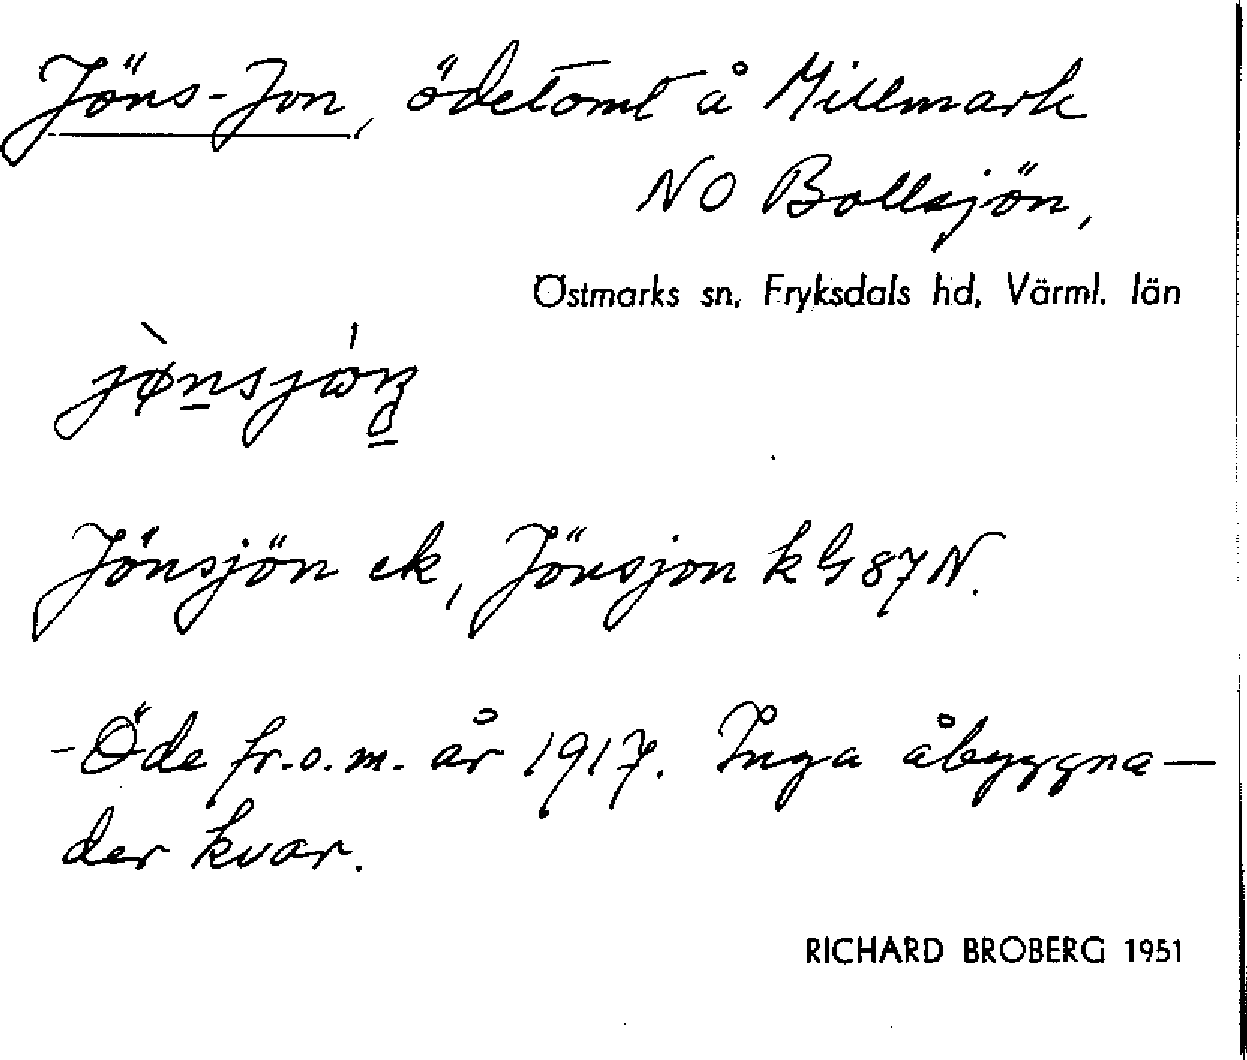 Jöns-Jon, ödetomt å Millmark
NO Bollsjön,
Östmarks sn, Fryksdals hd, Värml. län
Jönsjön ek, Jönsjon k G 87 N.
- Öde fr.o.m. år 1917. Inga åbyggna-
der kvar.
RICHARD BROBERG 1951